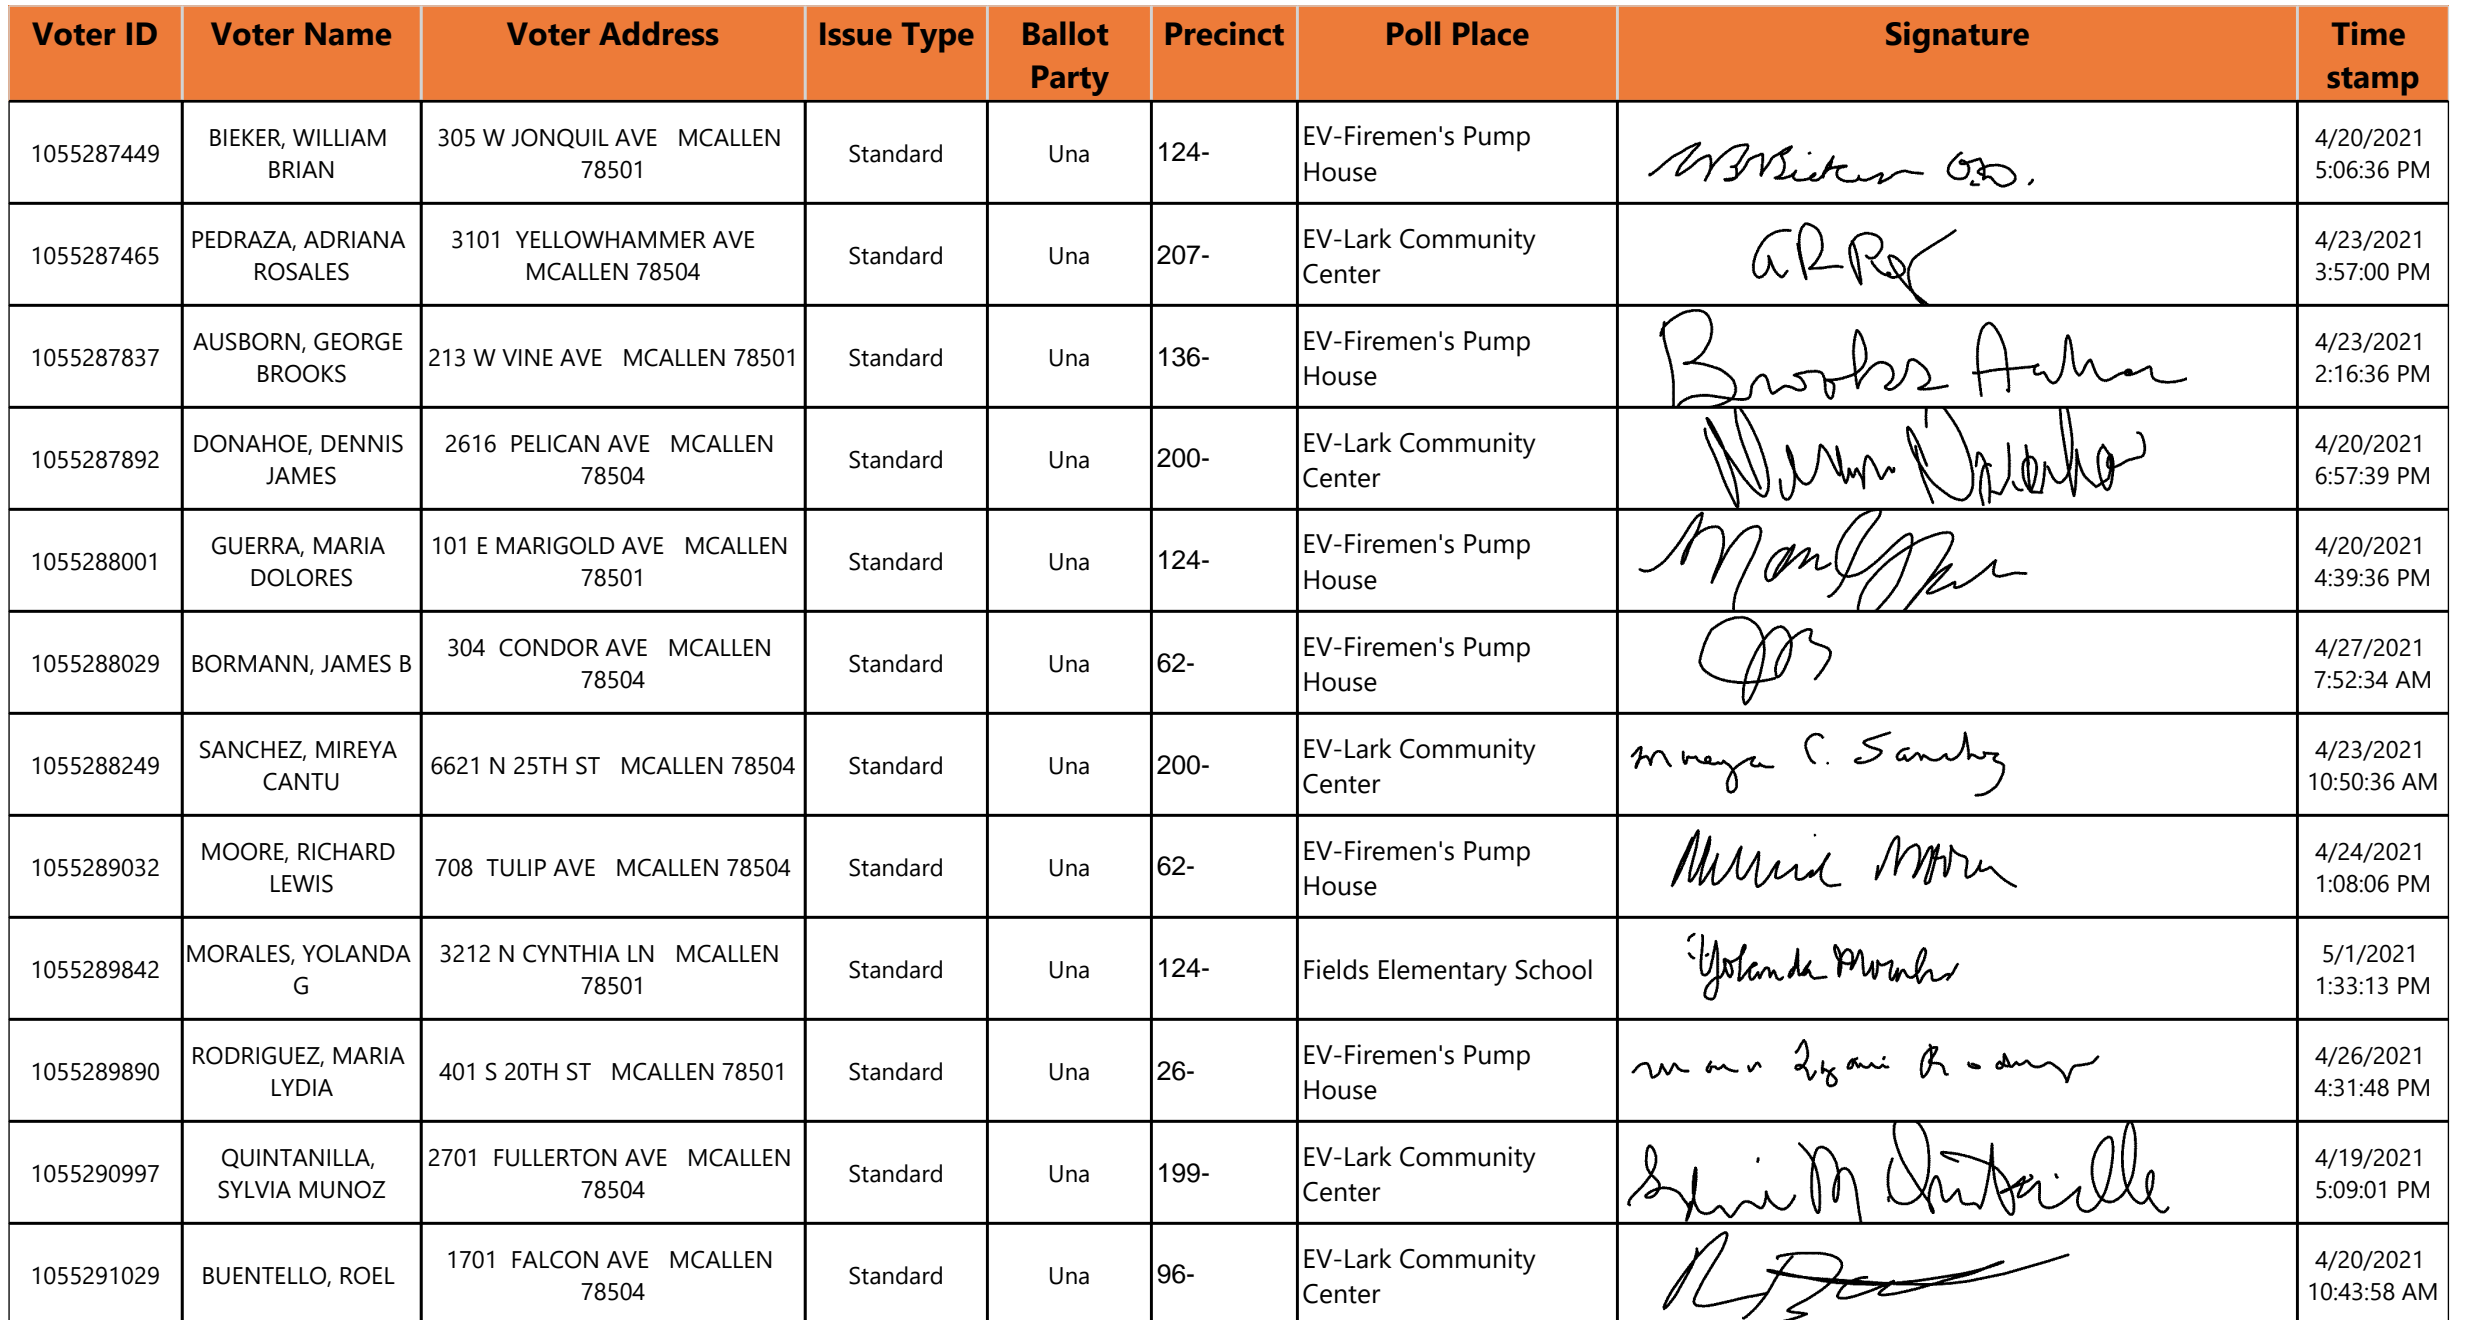 Voter ID Voter Name Voter Address Issue Type Ballot Party Precinct Poll Place Signature Time stamp
1055287449 BIEKER, WILLIAM BRIAN 305 W JONQUIL AVE MCALLEN 78501 Standard Una 124- EV-Firemen's Pump House 4/20/2021 5:06:36 PM
1055287465 PEDRAZA, ADRIANA ROSALES 3101 YELLOWHAMMER AVE MCALLEN 78504 Standard Una 207- EV-Lark Community Center 4/23/2021 3:57:00 PM
1055287837 AUSBORN, GEORGE BROOKS 213 W VINE AVE MCALLEN 78501 Standard Una 136- EV-Firemen's Pump House Brooks 4/23/2021 2:16:36 PM
1055287892 DONAHOE, DENNIS JAMES 2616 PELICAN AVE MCALLEN 78504 Standard Una 200- EV-Lark Community Center 4/20/2021 6:57:39 PM
1055288001 GUERRA, MARIA DOLORES 101 E MARIGOLD AVE MCALLEN 78501 Standard Una 124- EV-Firemen's Pump House 4/20/2021 4:39:36 PM
1055288029 BORMANN, JAMES B 304 CONDOR AVE MCALLEN 78504 Standard Una 62- EV-Firemen's Pump House 4/27/2021 7:52:34 AM
1055288249 SANCHEZ, MIREYA CANTU 6621 N 25TH ST MCALLEN 78504 Standard Una 200- EV-Lark Community Center Mireya C. Sanchez 4/23/2021 10:50:36 AM
1055289032 MOORE, RICHARD LEWIS 708 TULIP AVE MCALLEN 78504 Standard Una 62- EV-Firemen's Pump House 4/24/2021 1:08:06 PM
1055289842 MORALES, YOLANDA G 3212 N CYNTHIA LN MCALLEN 78501 Standard Una 124- Fields Elementary School Yolanda Morales 5/1/2021 1:33:13 PM
1055289890 RODRIGUEZ, MARIA LYDIA 401 S 20TH ST MCALLEN 78501 Standard Una 26- EV-Firemen's Pump House 4/26/2021 4:31:48 PM
1055290997 QUINTANILLA, SYLVIA MUNOZ 2701 FULLERTON AVE MCALLEN 78504 Standard Una 199- EV-Lark Community Center Sylvia M Quintanilla 4/19/2021 5:09:01 PM
1055291029 BUENTELLO, ROEL 1701 FALCON AVE MCALLEN 78504 Standard Una 96- EV-Lark Community Center 4/20/2021 10:43:58 AM